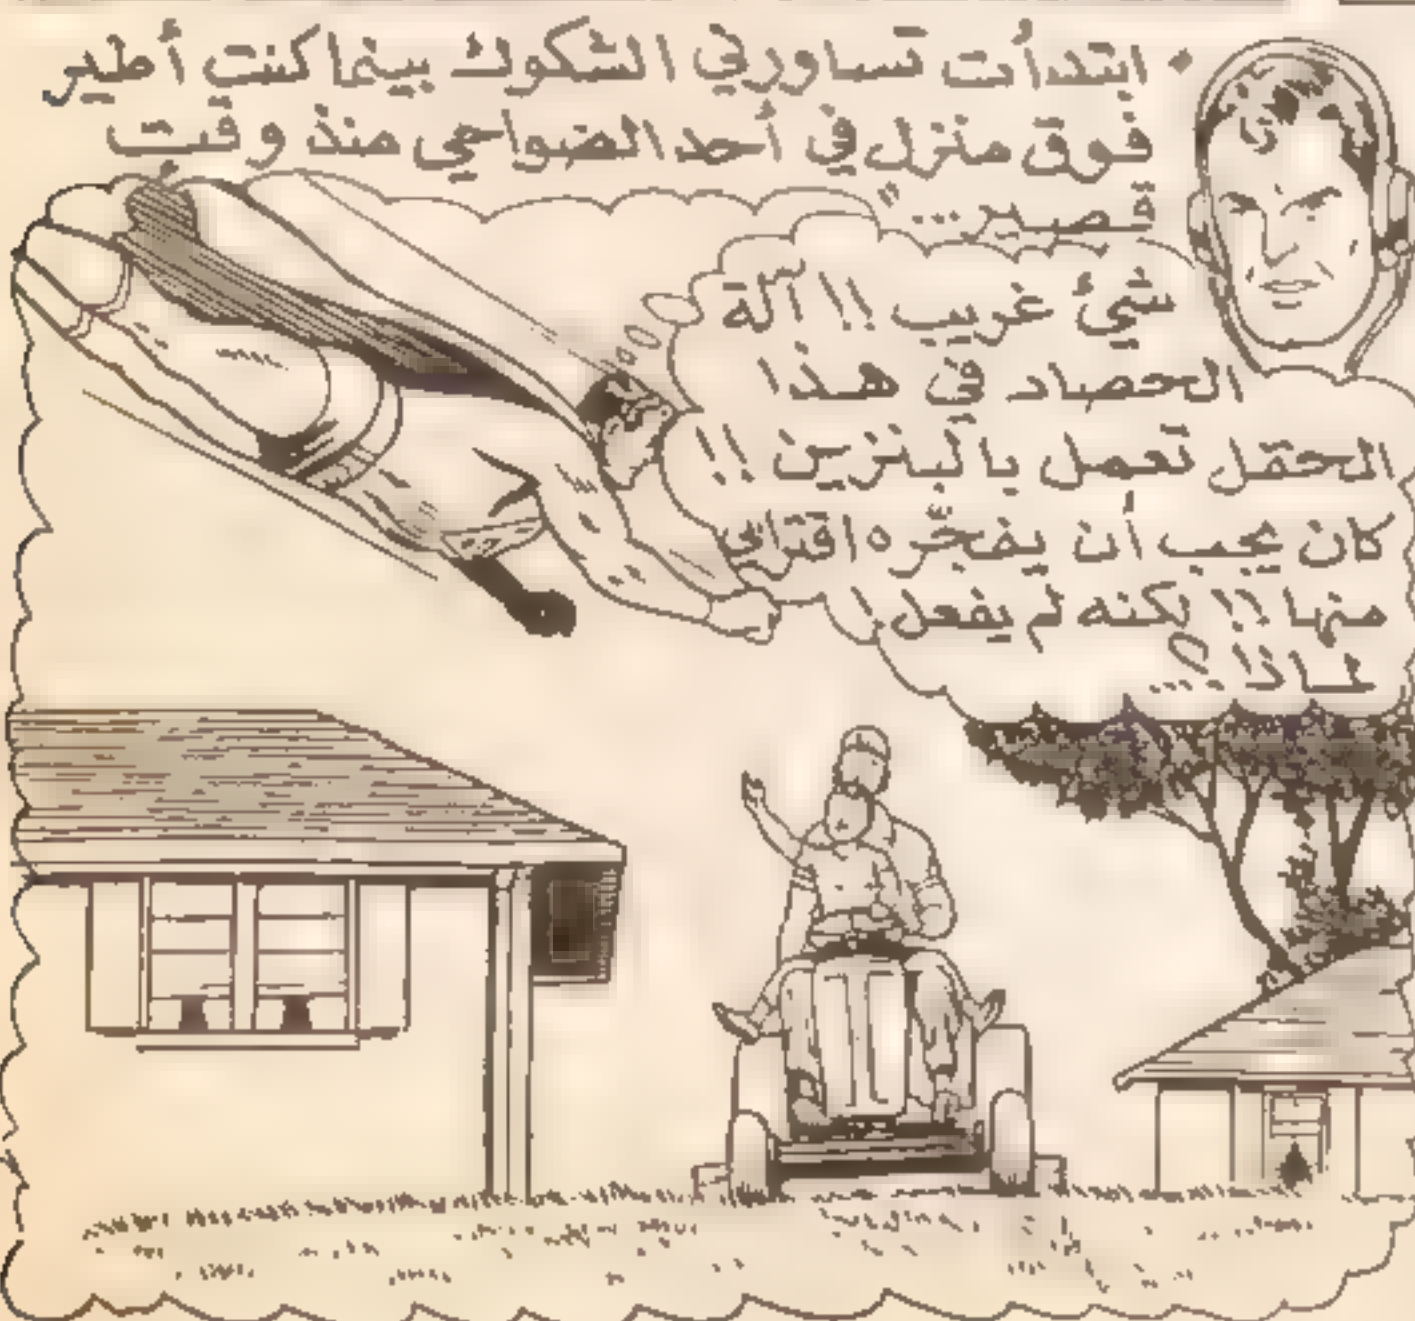 • ابتدأت تساورني الشكوك بينما كنت أطير
فوق منزل في أحد الضواحي منذ وقت
قصير..."
شيئ غريب !! آلة
الحصاد في هذا
الحقل تعمل بالبنزين !!
كان يجب أن يفجّره اقترابي
منها !! لكنه لم يفعل !
لماذا ؟...